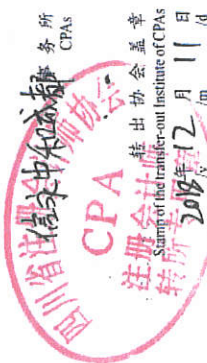 事务所
CPAs
信永中和成都
转出协会盖章
Stamp of the transfer-out Institute of CPAs
2018年12月11日
/y /m /d
四川省注册会计师协会
CPA
注册会计师
转所专用章